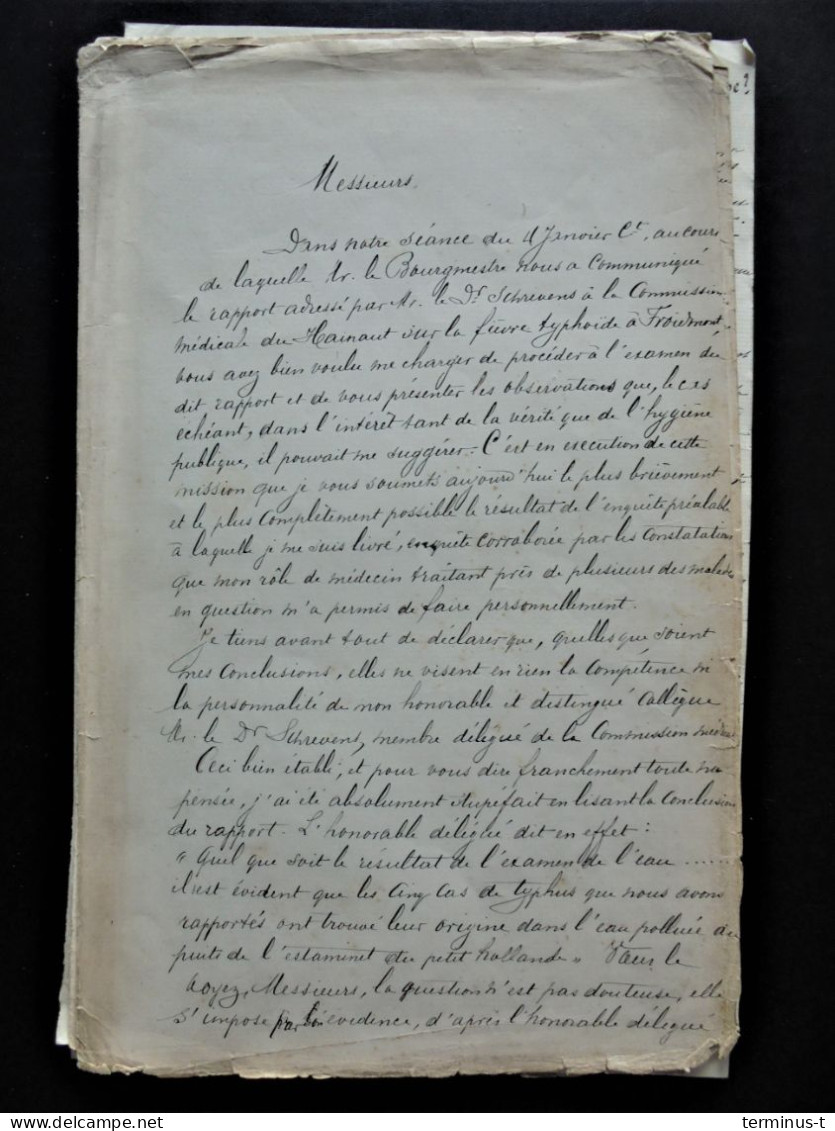 Messieurs.
Dans notre séance du 4 Janvier Ct, au cours
de laquelle Mr. le Bourgmestre nous a communiqué
le rapport adressé par Mr. le Dr Schrevens à la Commission
médicale du Hainaut sur la fièvre typhoïde à Froidmont
vous avez bien voulu me charger de procéder à l'examen du
dit rapport et de vous présenter les observations que, le cas
échéant, dans l'intérêt tant de la vérité que de l'hygiène
publique, il pouvait me suggérer. C'est en exécution de cette
mission que je vous soumets aujourd'hui le plus brièvement
et le plus complètement possible le résultat de l'enquête préalable
à laquelle je me suis livré, enquête corroborée par les constatations
que mon rôle de médecin traitant près de plusieurs des malades
en question m'a permis de faire personnellement.
Je tiens avant tout de déclarer que, quelles que soient
mes conclusions, elles ne visent en rien la compétence ni
la personnalité de mon honorable et distingué collègue
Mr. le Dr Schrevens, membre délégué de la Commission
Ceci bien établi, et pour vous dire franchement toute ma
pensée, j'ai été absolument stupéfait en lisant la conclusion
du rapport. L'honorable délégué dit en effet :
" Quel que soit le résultat de l'examen de l'eau ......
il est évident que les cinq cas de typhus que nous avons
rapportés ont trouvé leur origine dans l'eau polluée du
puits de l'estaminet du petit hollande " Vous le
voyez, Messieurs, la question n'est pas douteuse, elle
s'impose par évidence, d'après l'honorable délégué
terminus-t